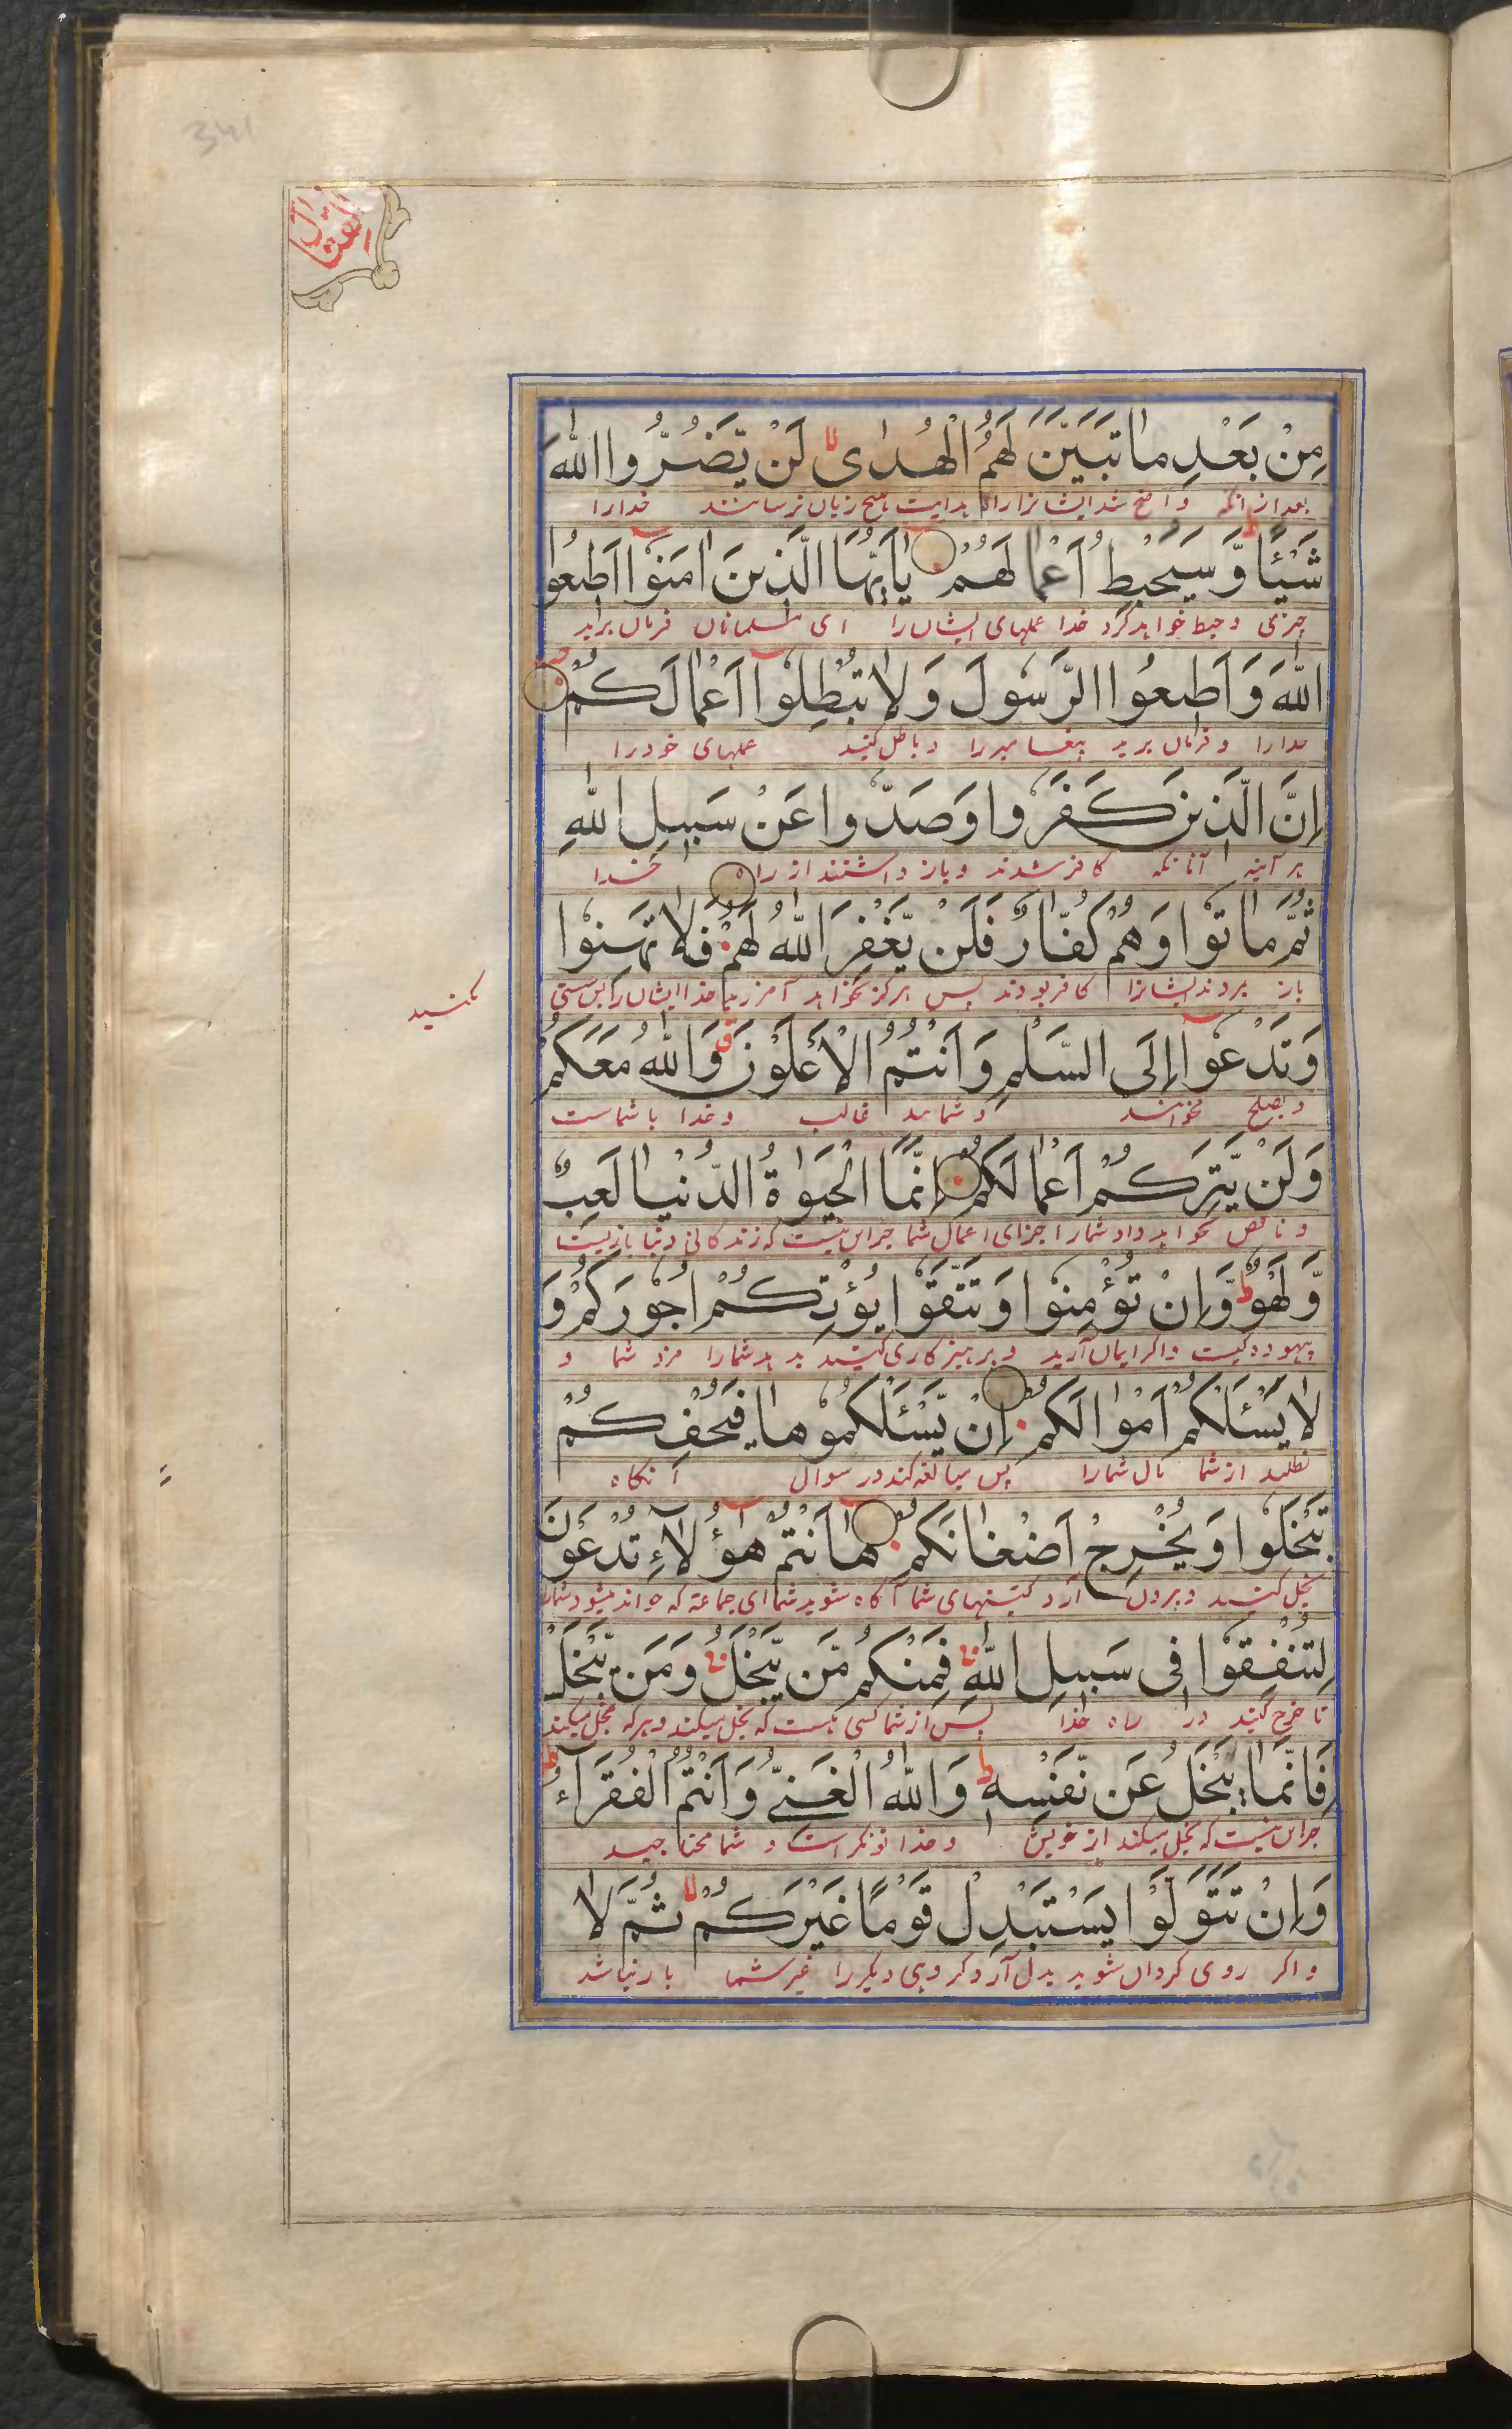 القتال
مِنْ بَعْدِ مَا تَبَيَّنَ لَهُمُ الْهُدٰى لَنْ يَّضُرُّوا اللّٰهَ
بعد از آنکه واضح شد ایشانرا راه هدایت هیچ زیان نرسانند خدارا
شَيْـًٔا وَّسَيُحْبِطُ اَعْمَالَهُمْ يٰٓاَيُّهَا الَّذِينَ اٰمَنُوْٓا اَطِيعُوا
چیزی و حبط خواهد کرد خدا عملهای ایشان را ای مسلمانان فرمان برید
اللّٰهَ وَاَطِيعُوا الرَّسُولَ وَلَا تُبْطِلُوْٓا اَعْمَالَكُمْ
خدارا و فرمان برید پیغامبر را و باطل کنید عملهای خود را
اِنَّ الَّذِينَ كَفَرُوا وَصَدُّوا عَنْ سَبِيلِ اللّٰهِ
هر آینه آنانکه کافر شدند و باز داشتند از راه خدا
ثُمَّ مَاتُوا وَهُمْ كُفَّارٌ فَلَنْ يَّغْفِرَ اللّٰهُ لَهُمْ فَلَا تَهِنُوا
باز مردند ایشانرا کافر بودند پس هرگز نخواهد آمرزید خدا ایشان را پس سستی
مکنید
وَتَدْعُوْٓا اِلَى السَّلْمِ وَاَنْتُمُ الْاَعْلَوْنَ وَاللّٰهُ مَعَكُمْ
و بصلح نخوانند و شمایید غالب و خدا با شماست
وَلَنْ يَّتِرَكُمْ اَعْمَالَكُمْ اِنَّمَا الْحَيٰوةُ الدُّنْيَا لَعِبٌ
و ناقص نخواهد داد شمارا جزای اعمال شما جز این نیست که زندگانی دنیا بازیست
وَّلَهْوٌ وَّاِنْ تُؤْمِنُوا وَتَتَّقُوا يُؤْتِكُمْ اُجُورَكُمْ وَ
بیهوده گیست و اگر ایمان آرید و پرهیزکاری کنید بدهد شمارا مزد شما و
لَا يَسْـَٔلْكُمْ اَمْوَالَكُمْ اِنْ يَّسْـَٔلْكُمُوهَا فَيُحْفِكُمْ
نطلبد از شما مال شمارا پس مبالغه کند در سوال آنگاه
تَبْخَلُوا وَيُخْرِجْ اَضْغَانَكُمْ هٰٓاَنْتُمْ هٰٓؤُلَآءِ تُدْعَوْنَ
بخل کنید و بیرون آرد کینهای شما آگاه شوید شما ای جماعة که خوانده میشود شمارا
لِتُنْفِقُوا فِى سَبِيلِ اللّٰهِ فَمِنْكُمْ مَّنْ يَّبْخَلُ وَمَنْ يَّبْخَلْ
تا خرج کنید در راه خدا پس از شما کسی هست که بخل میکند و هر که بخل میکند
فَاِنَّمَا يَبْخَلُ عَنْ نَّفْسِهٖ وَاللّٰهُ الْغَنِىُّ وَاَنْتُمُ الْفُقَرَآءُ
جز این نیست که بخل میکند از خویش و خدا تونگر است و شما محتاجید
وَاِنْ تَتَوَلَّوْا يَسْتَبْدِلْ قَوْمًا غَيْرَكُمْ ثُمَّ لَا
و اگر روی گردان شوید بدل آرد گروهی دیگر را غیر شما باز نباشد